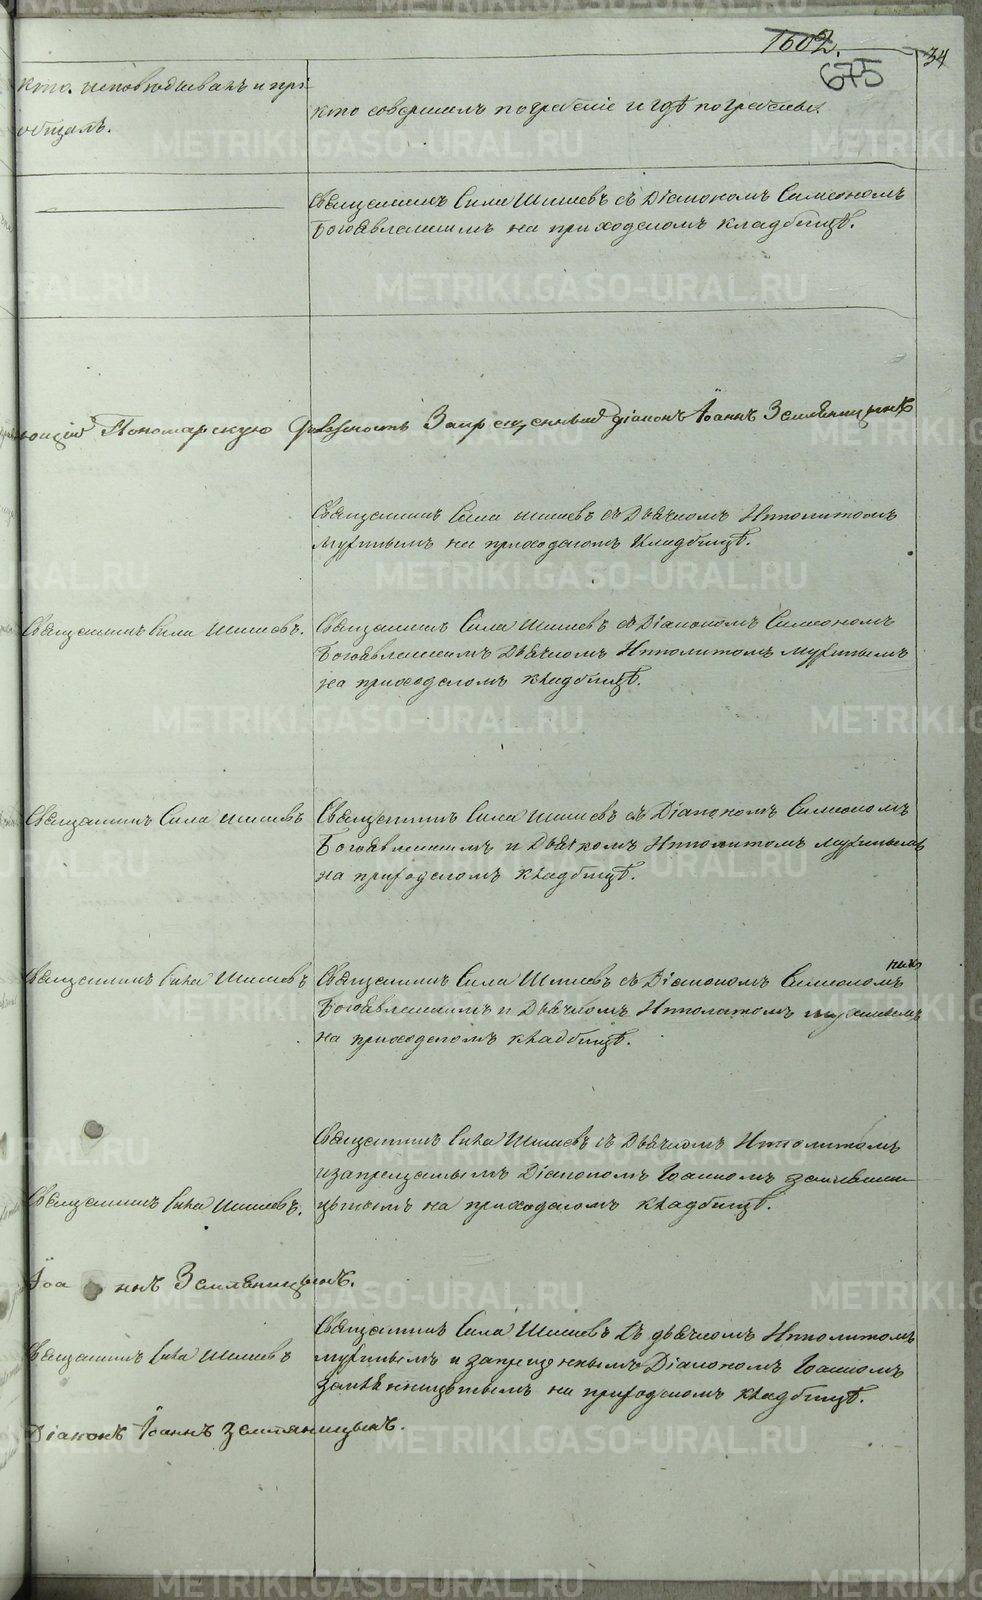 1602.
675
34
Кто исповѣдывалъ и прі-
общалъ.
Кто совершалъ погребеніе и гдѣ погребены.
Священникъ Сила Шишевъ съ Діакономъ Симеономъ
Богоявленскимъ на приходскомъ кладбищѣ.
ющій Пономарскую Должность Запрещенный Діаконъ Іоаннъ Земляницынъ
Священникъ Сила Шишевъ съ Дьячкомъ Ипполитомъ
Мухинымъ на приходскомъ кладбищѣ.
Священникъ Сила Шишевъ.
Священникъ Сила Шишевъ съ Діакономъ Симеономъ
Богоявленскимъ Дьячкомъ Ипполитомъ Мухинымъ
на приходскомъ кладбищѣ.
Священникъ Сила Шишевъ
Священникъ Сила Шишевъ съ Діакономъ Симеономъ
Богоявленскимъ и Дьячкомъ Ипполитомъ Мухинымъ
на приходскомъ кладбищѣ.
Священникъ Сила Шишевъ
Священникъ Сила Шишевъ съ Діакономъ Симеономъ
Богоявленскимъ и Дьячкомъ Ипполитомъ Мухинымъ
на приходскомъ кладбищѣ.
Священникъ Сила Шишевъ съ Дьячкомъ Ипполитомъ
и запрещеннымъ Діакономъ Іоанномъ Земляни-
Священникъ Сила Шишевъ.
цынымъ на приходскомъ кладбищѣ.
Іоаннъ Земляницынъ.
Священникъ Сила Шишевъ съ дьячкомъ Ипполитомъ
Священникъ Сила Шишевъ
Мухинымъ и запрещеннымъ Діакономъ Іоанномъ
Земляницынымъ на приходскомъ кладбищѣ.
Діаконъ Іоаннъ Земляницынъ.
METRIKI.GASO-URAL.RU